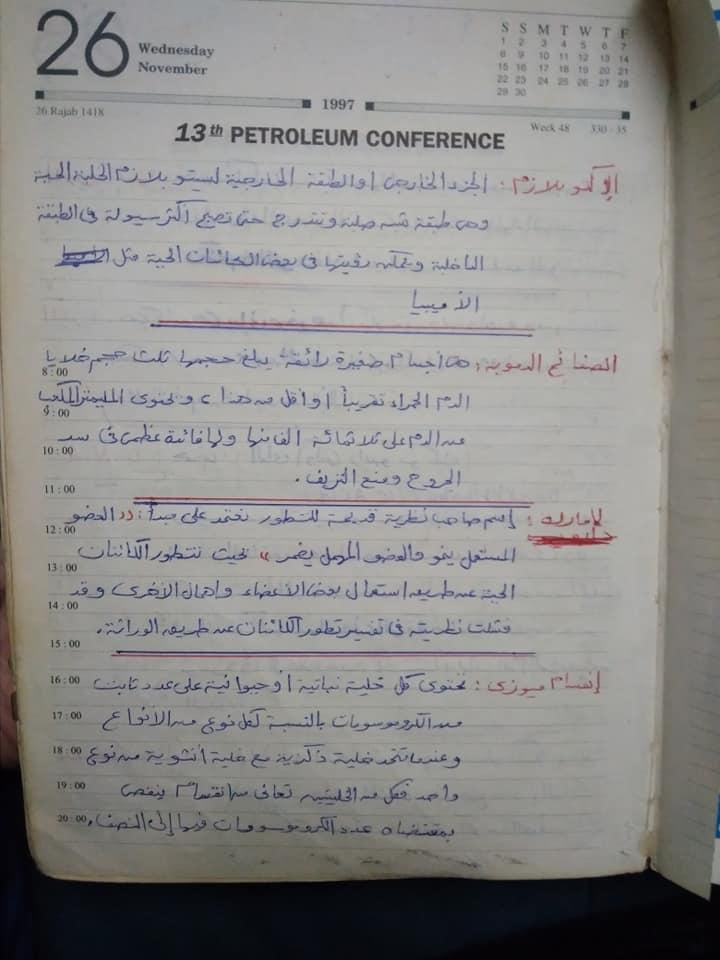 26
Wednesday
November
S S M T W T F
1 2 3 4 5 6 7
8 9 10 11 12 13 14
15 16 17 18 19 20 21
22 23 24 25 26 27 28
29 30
1997
26 Rajab 1418
Week 48 330 - 35
13th PETROLEUM CONFERENCE
إكتوبلازم : الجزء الخارجى أو الطبقة الخارجية لسيتوبلازم الخلية الحية
وهى طبقة شبه صلبة وتتدرج حتى تصبح أكثر سيولة فى الطبقة
الداخلية ويمكن رؤيتها فى بعض الكائنات الحية مثل
الأميبيا
الصفائح الدموية : هى أجسام صغيرة رائقة يبلغ حجمها ثلث حجم خلايا
8 : 00
الدم الحمراء تقريباً أو أقل من هذا ، ويحتوى المليمتر المكعب
9 : 00
من الدم على ثلاثمائة ألف منها ولها فائدة عظمى فى سد
10 : 00
الجروح ومنع النزيف .
11 : 00
لامارك : إسم صاحب نظرية قديمة للتطور تعتمد على مبدأ : (( العضو
12 : 00
المستعمل ينمو والعضو المهمل يضمر )) بحيث تتطور الكائنات
13 : 00
الحية عن طريق استعمال بعض الأعضاء وإهمال الأخرى وقد
14 : 00
فشلت نظريته فى تفسير تطور الكائنات عن طريق الوراثة .
15 : 00
إنقسام ميوزى : تحتوى كل خلية نباتية أو حيوانية على عدد ثابت
16 : 00
من الكروموسومات بالنسبة لكل نوع من الأنواع
17 : 00
وعندما تتحد خلية ذكرية مع خلية أنثوية من نوع
18 : 00
واحد فكل من الخليتين تعانى من انقسام ينقص
19 : 00
بمقتضاه عدد الكروموسومات فيها إلى النصف .
20 : 00